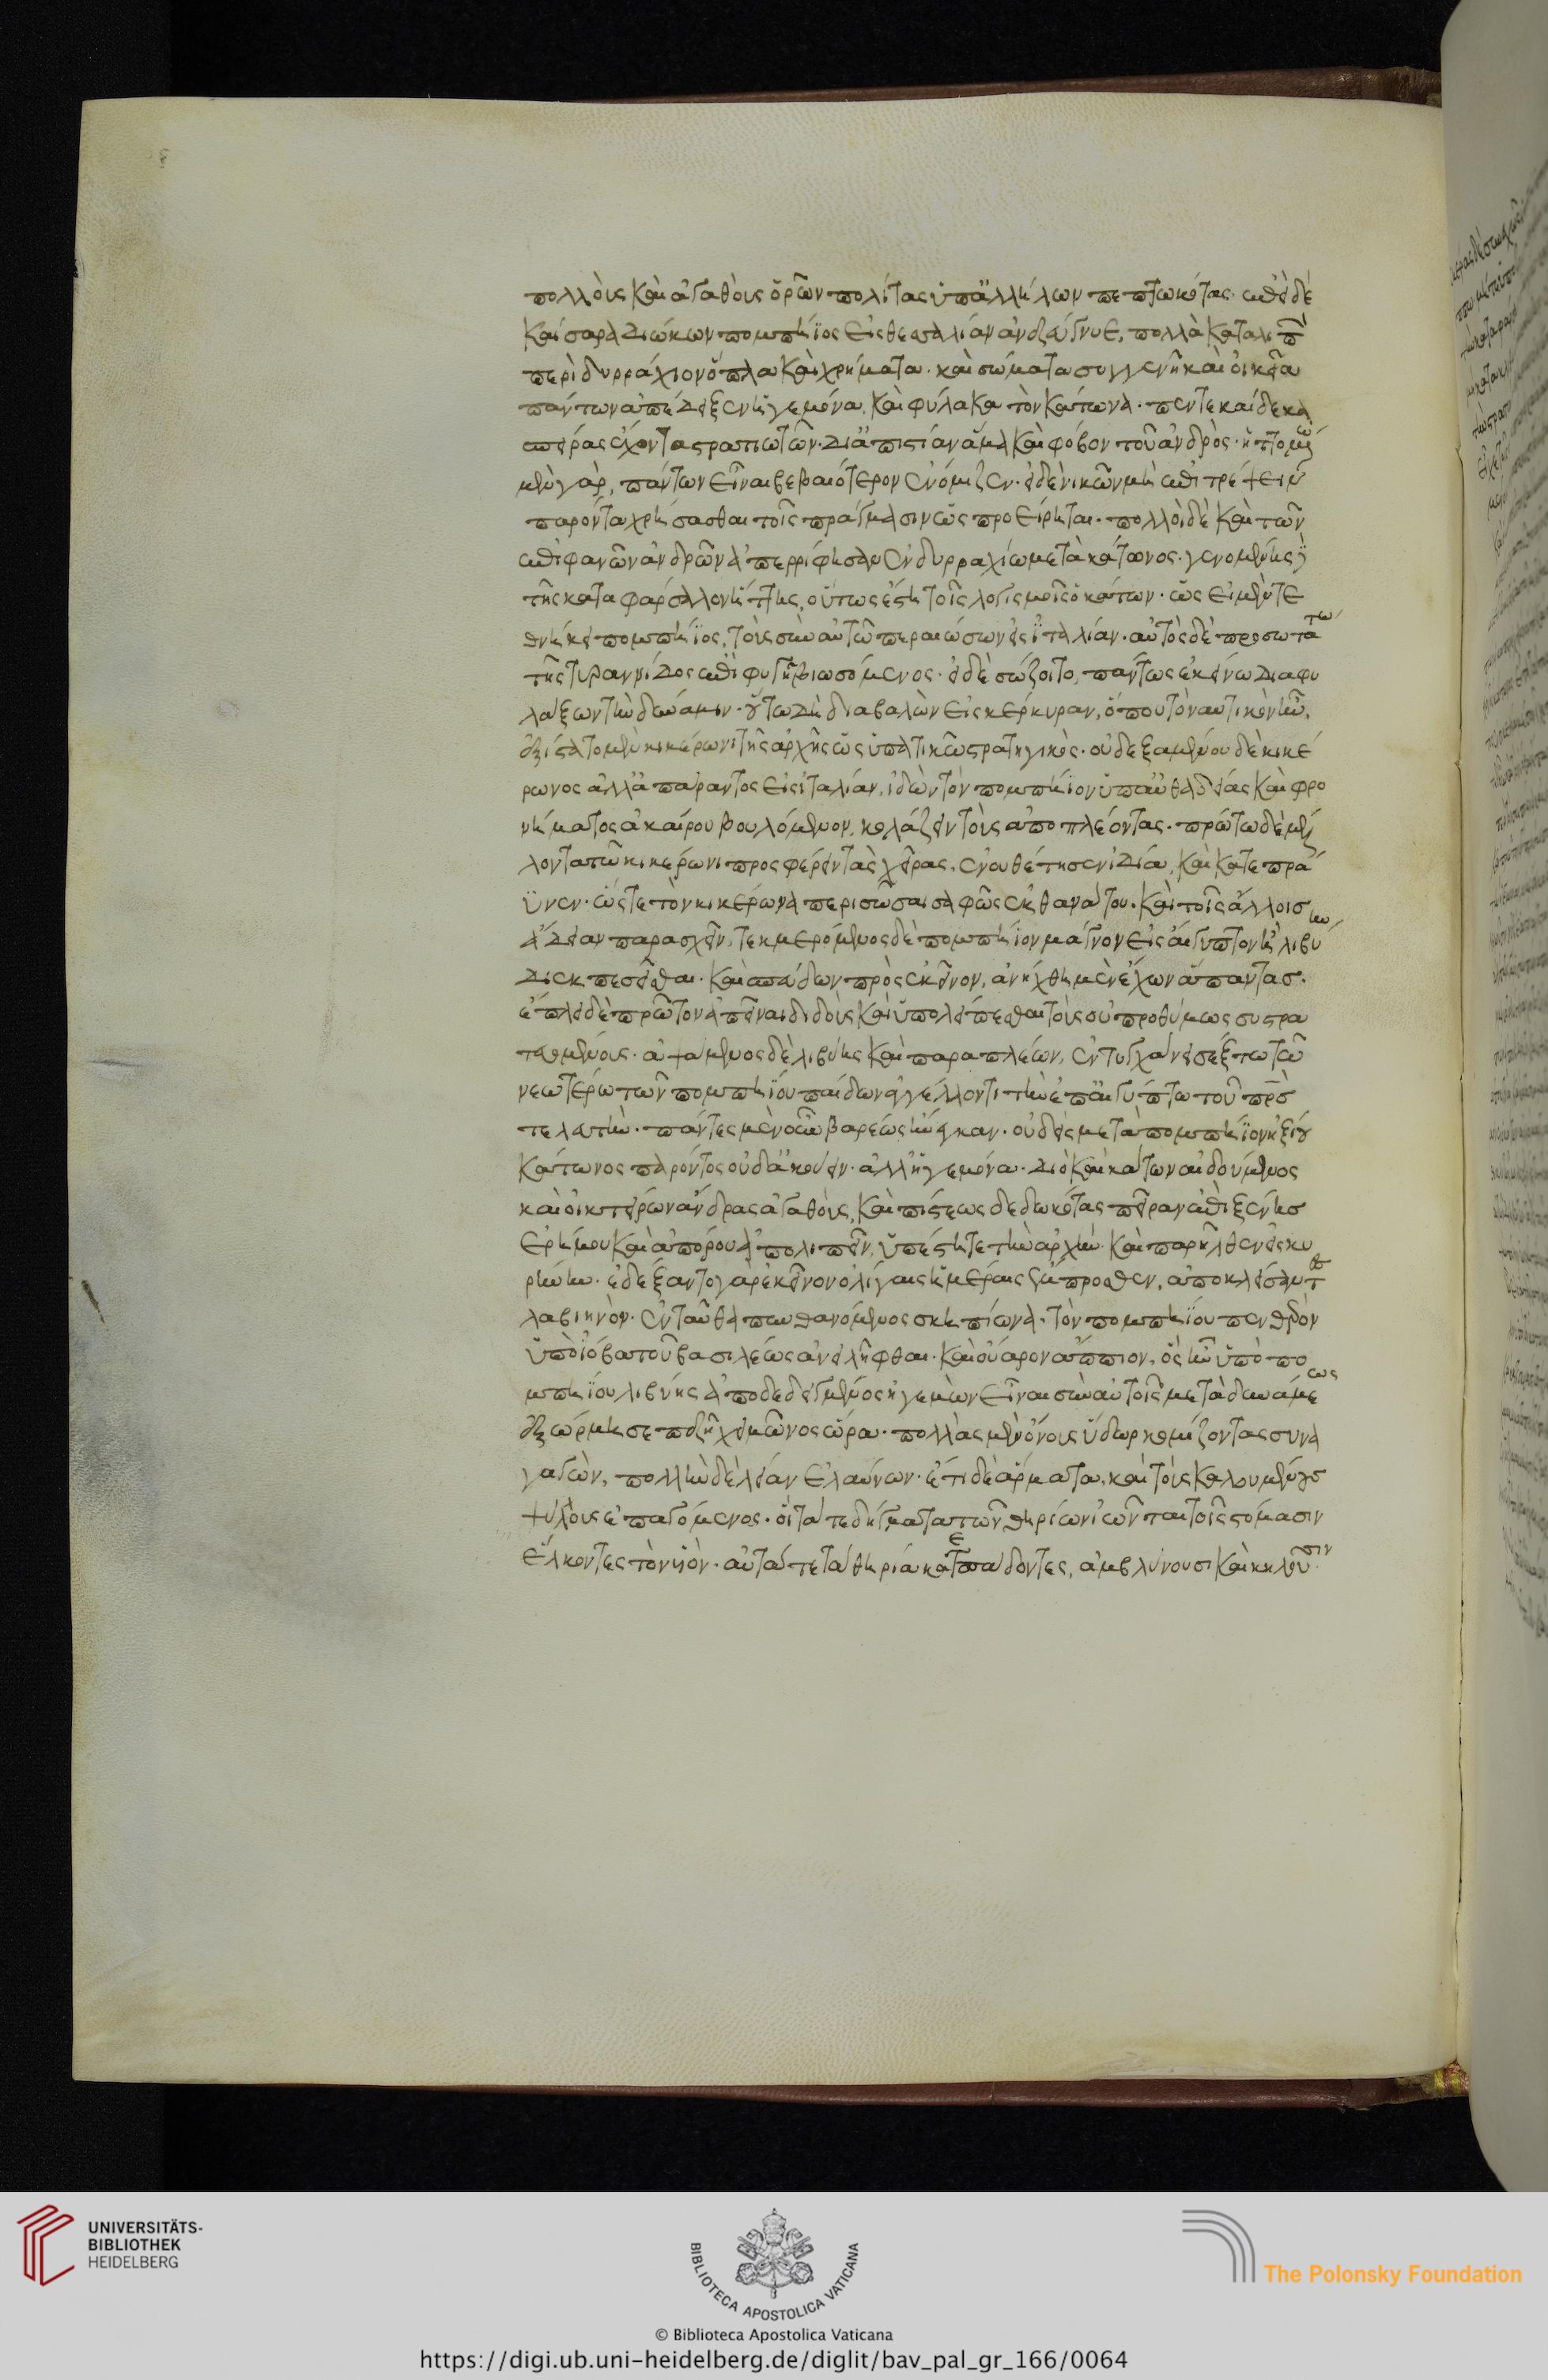 πολλοὺς καὶ ἀγαθοὺς ὁρῶν πολίτας ὑπ' ἀλλήλων πεπτωκότας. ἐπεὶ δὲ
καίσαρα διώκων πομπήϊος εἰς θεσσαλίαν ἀνεζεύγνυε, πολλὰ καταλιπὼ
περὶ δυρράχιον ὅπλα καὶ χρήματα. καὶ σώματα συγγενῆ καὶ οἰκεῖα
πάντων ἀπέδειξεν ἡγεμόνα, καὶ φύλακα τὸν κάτωνα. πεντεκαίδεκα
σπείρας ἔχοντα στρατιωτῶν. δι' ἀπιστίαν ἅμα καὶ φόβον τοῦ ἀνδρὸς. ἡττομέ
μὲν γὰρ, πάντων εἶναι βεβαιότερον ἐνόμιζεν. εἰ δὲ νικῶν μὴ ἐπιτρέψειν
παρόντα χρήσασθαι τοῖς πράγμασιν ὡς προείρηται. πολλοὶ δὲ καὶ τῶν
ἐπιφανῶν ἀνδρῶν ἀπερρίφησαν ἐν δυρραχίω μετὰ κάτωνος. γενομένης
τῆς κατα φάρσαλον ἥττης, οὕτως ἔστη τοῖς λογισμοῖς ὁ κάτων. ὡς εἰ μὲν τε
θνήκει πομπήϊος, τοὺς σὺν αὐτῶ περαιώσων εἰς ἰταλίαν. αὐτὸς δὲ προσωτάτω
τῆς τυραννίδος ἐπὶ φυγῆ βιωσόμενος. εἰ δὲ σώζοιτο, πάντως ἐκείνω διαφυ
λάξων τὴν δύναμιν. οὕτω δὴ διαβαλὼν εἰς κέρκυραν, ὅπου τὸ ναυτικὸν ἦν,
ἐξίστατο μὲν κικέρωνι τῆς ἀρχῆς ὡς ὑπατικῶ στρατηγικὸς. οὐ δεξαμένου δὲ κικέ
ρωνος ἀλλ' ἀπάραντος εἰς ἰταλίαν, ἰδὼν τὸν πομπήϊον ὑπ' αὐθαδείας καὶ φρο
νήματος ἀκαίρου βουλόμενον, κολάζειν τοὺς ἀποπλέοντας. πρώτω δὲ μέλ
λοντα τῶ κικέρωνι προσφέρειν τὰς χεῖρας, ἐνουθέτησεν ἰδία, καὶ κατεπρά
ϋνεν. ὥστε τὸν κικέρωνα περισῶσαι σαφῶς ἐκ θανάτου. καὶ τοῖς ἄλλοισ
ἄδειαν παρασχεῖν, τεκμερόμενος δὲ πομπήϊον μάγνον εἰς αἴγυπτον ἢ λιβύην
διεκπεσεῖσθαι. καὶ σπεύδων πρὸς ἐκεῖνον, ἀνήχθη μὲν ἔχων ἅπαντασ.
ἔπλει δὲ πρῶτον ἀπιέναι διδοὺς καὶ ὑπολείπεσθαι τοὺς οὐ προθύμως συστρα
τευομένους. ἁψάμενος δὲ λιβύης καὶ παραπλέων, ἐντυγχάνει σέξτω τῶ
νεωτέρω τῶν πομπηΐου παίδων ἀγγέλλοντι τὴν ἐπ' αἰγύπτω τοῦ πρσ
τελευτὴν. πάντες μὲν οὖν βαρέως ἤνεγκαν. οὐδεὶς μετὰ πομπήϊον ἠξίου
κάτωνος παρόντος οὐδ' ἀκούειν. ἄλλ' ἡγεμόνα. διὸ καὶ κάτων αἰδούμενος
καὶ οἰκτείρων ἄνδρας ἀγαθοὺς, καὶ πίστεως δεδωκότας πεῖραν ἐπὶ ξένησ
ἐρήμου καὶ ἀπόρου ἀπολιπεῖν, ὑπέστη τε τὴν ἀρχὴν. καὶ παρῆλθεν εἰς κυ
ρήνην. ἐδέξαντο γὰρ ἐκεῖνον ὀλίγαις ἡμέραις ἔμπροσθεν, ἀποκλείσαντες
λαβιηνὸν. ἐνταῦθα πυνθανόμενος σκηπίωνα. τὸν πομπηΐου πενθερὸν
ὑπὸ ἰόβα τοῦ βασιλέως ἀνειλῆφθαι. καὶ οὐάρον ἄππιον, ὅς ἦν ὑπὸ πο
μπηΐου λιβύης ἀποδεδειγμένος ἡγεμὼν εἶναι σὺν αὐτοῖς μετὰ δυνάμεως
ἐξώρμησε πεζῆ χειμῶνος ὥρα. πολλὰς μὲν ὄνους ὕδωρ κομίζοντας συνα
γαγὼν, πολλὴν δὲ λείαν ἐλαύνων. ἔτι δὲ ἅρματα, καὶ τοὺς καλουμένουσ
ψύλλους ἐπαγόμενος. οἵ τά τε δήγματα τῶν θηρίων ἰῶνται τοῖς στόμασιν
ἕλκοντες τὸν ἰὸν. αὐτά τε τὰ θηρία κατεπάδοντες, ἀμβλύνουσι καὶ κηλοῦσιν
UNIVERSITÄTS-
BIBLIOTHEK
HEIDELBERG
BIBLIOTECA APOSTOLICA VATICANA
© Biblioteca Apostolica Vaticana
The Polonsky Foundation
https://digi.ub.uni-heidelberg.de/diglit/bav_pal_gr_166/0064